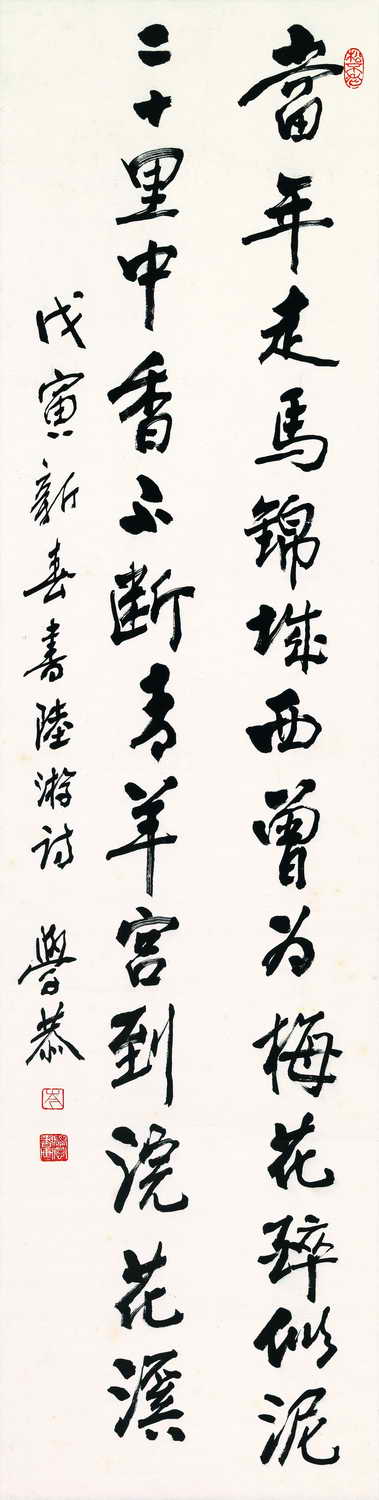 當年走馬錦城西曾为梅花醉似泥
二十里中香不断青羊宫到浣花溪
戊寅新春書陸游诗 學恭
岑